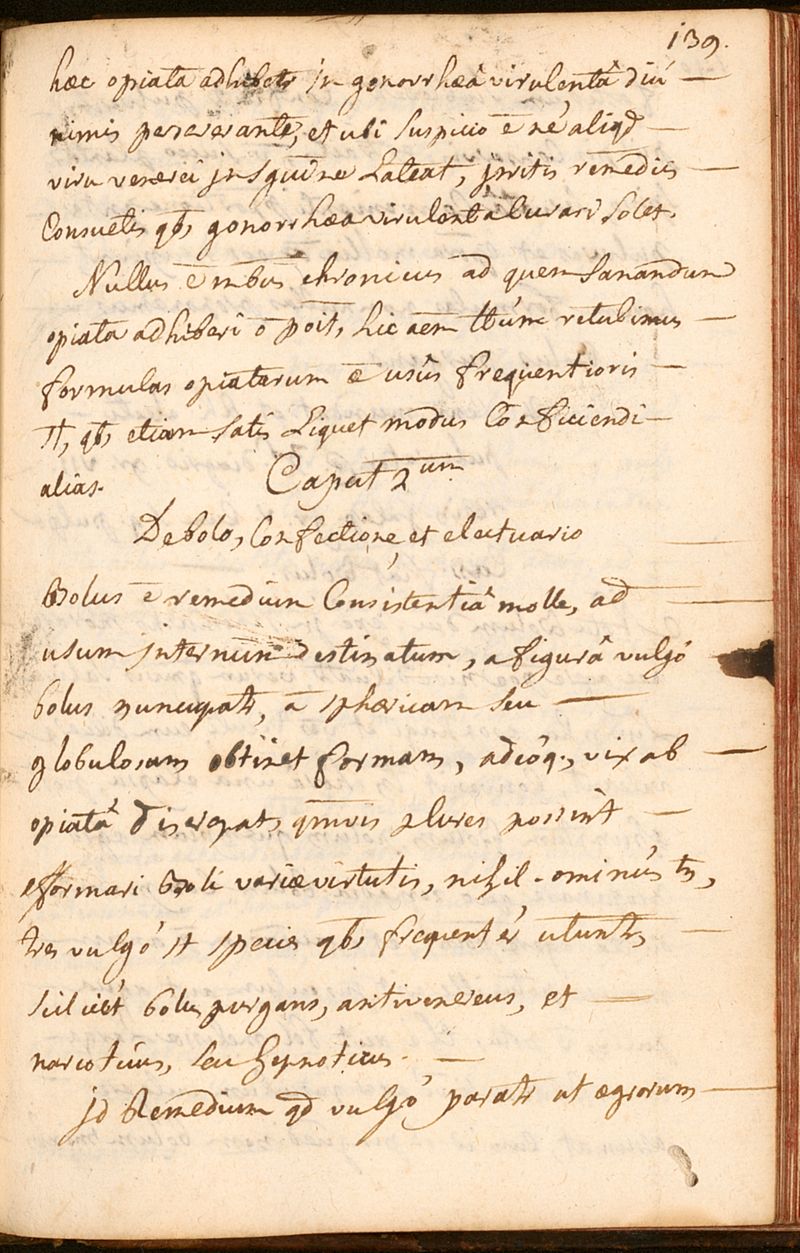 139.
hæc opiata adhibetr jn gonorrhæâ virulentâ diú
nimis perseverante, et ubi suspicio ē né aliqd
viru venerei jn sguīne Lateat, jrritis remediis
Consuetis qbs gonorrhæa virulenta Curari solet.
Nullus ē mbus chronicus ad quem sanandum
opiata adhiberi ō poit, hic aēm ttúm retulimus
formulas opiatarum æ usûs frequentioris
st, qbs etiam satis Liquet modus Conficiendi
alias.
Caput 2um
De bolo, Confectione, et electuario
Bolus ē remedium Consistentiâ molle, ad
usum jnternum destinatum, a figurâ vulgó
bolus nuncupatr, ā sphæricam seu
globulosam obtinet formam, adeóq., vix ab
opiatâ discrepat, qmvis plures possint
efformari boli variæ virtutis, nihil-ominús tn,
tres vulgó st species qbs frequentér utuntr,
scilicét bolus purgans, antivenereus, et
narcoticus, seu hypnoticus.
jd Remedium qd vulgó paratr ut ægrorum